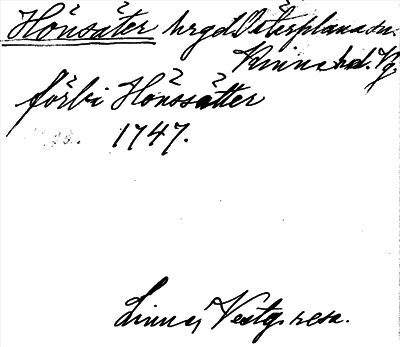 Hönsäter hrgd Österplana sn.
Kinne hd. Vg
förbi Hönssätter
1747.
Linné, Vestg. resa.